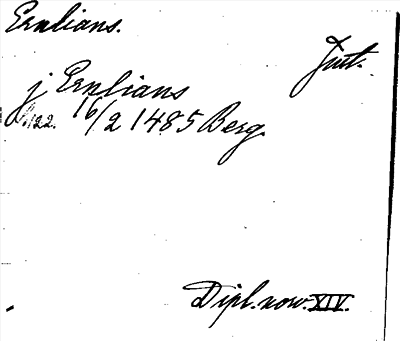 Erulians.
Jnt.
j Erulians
122. 16/2 1485 Berg.
Dipl. norv. XIV.